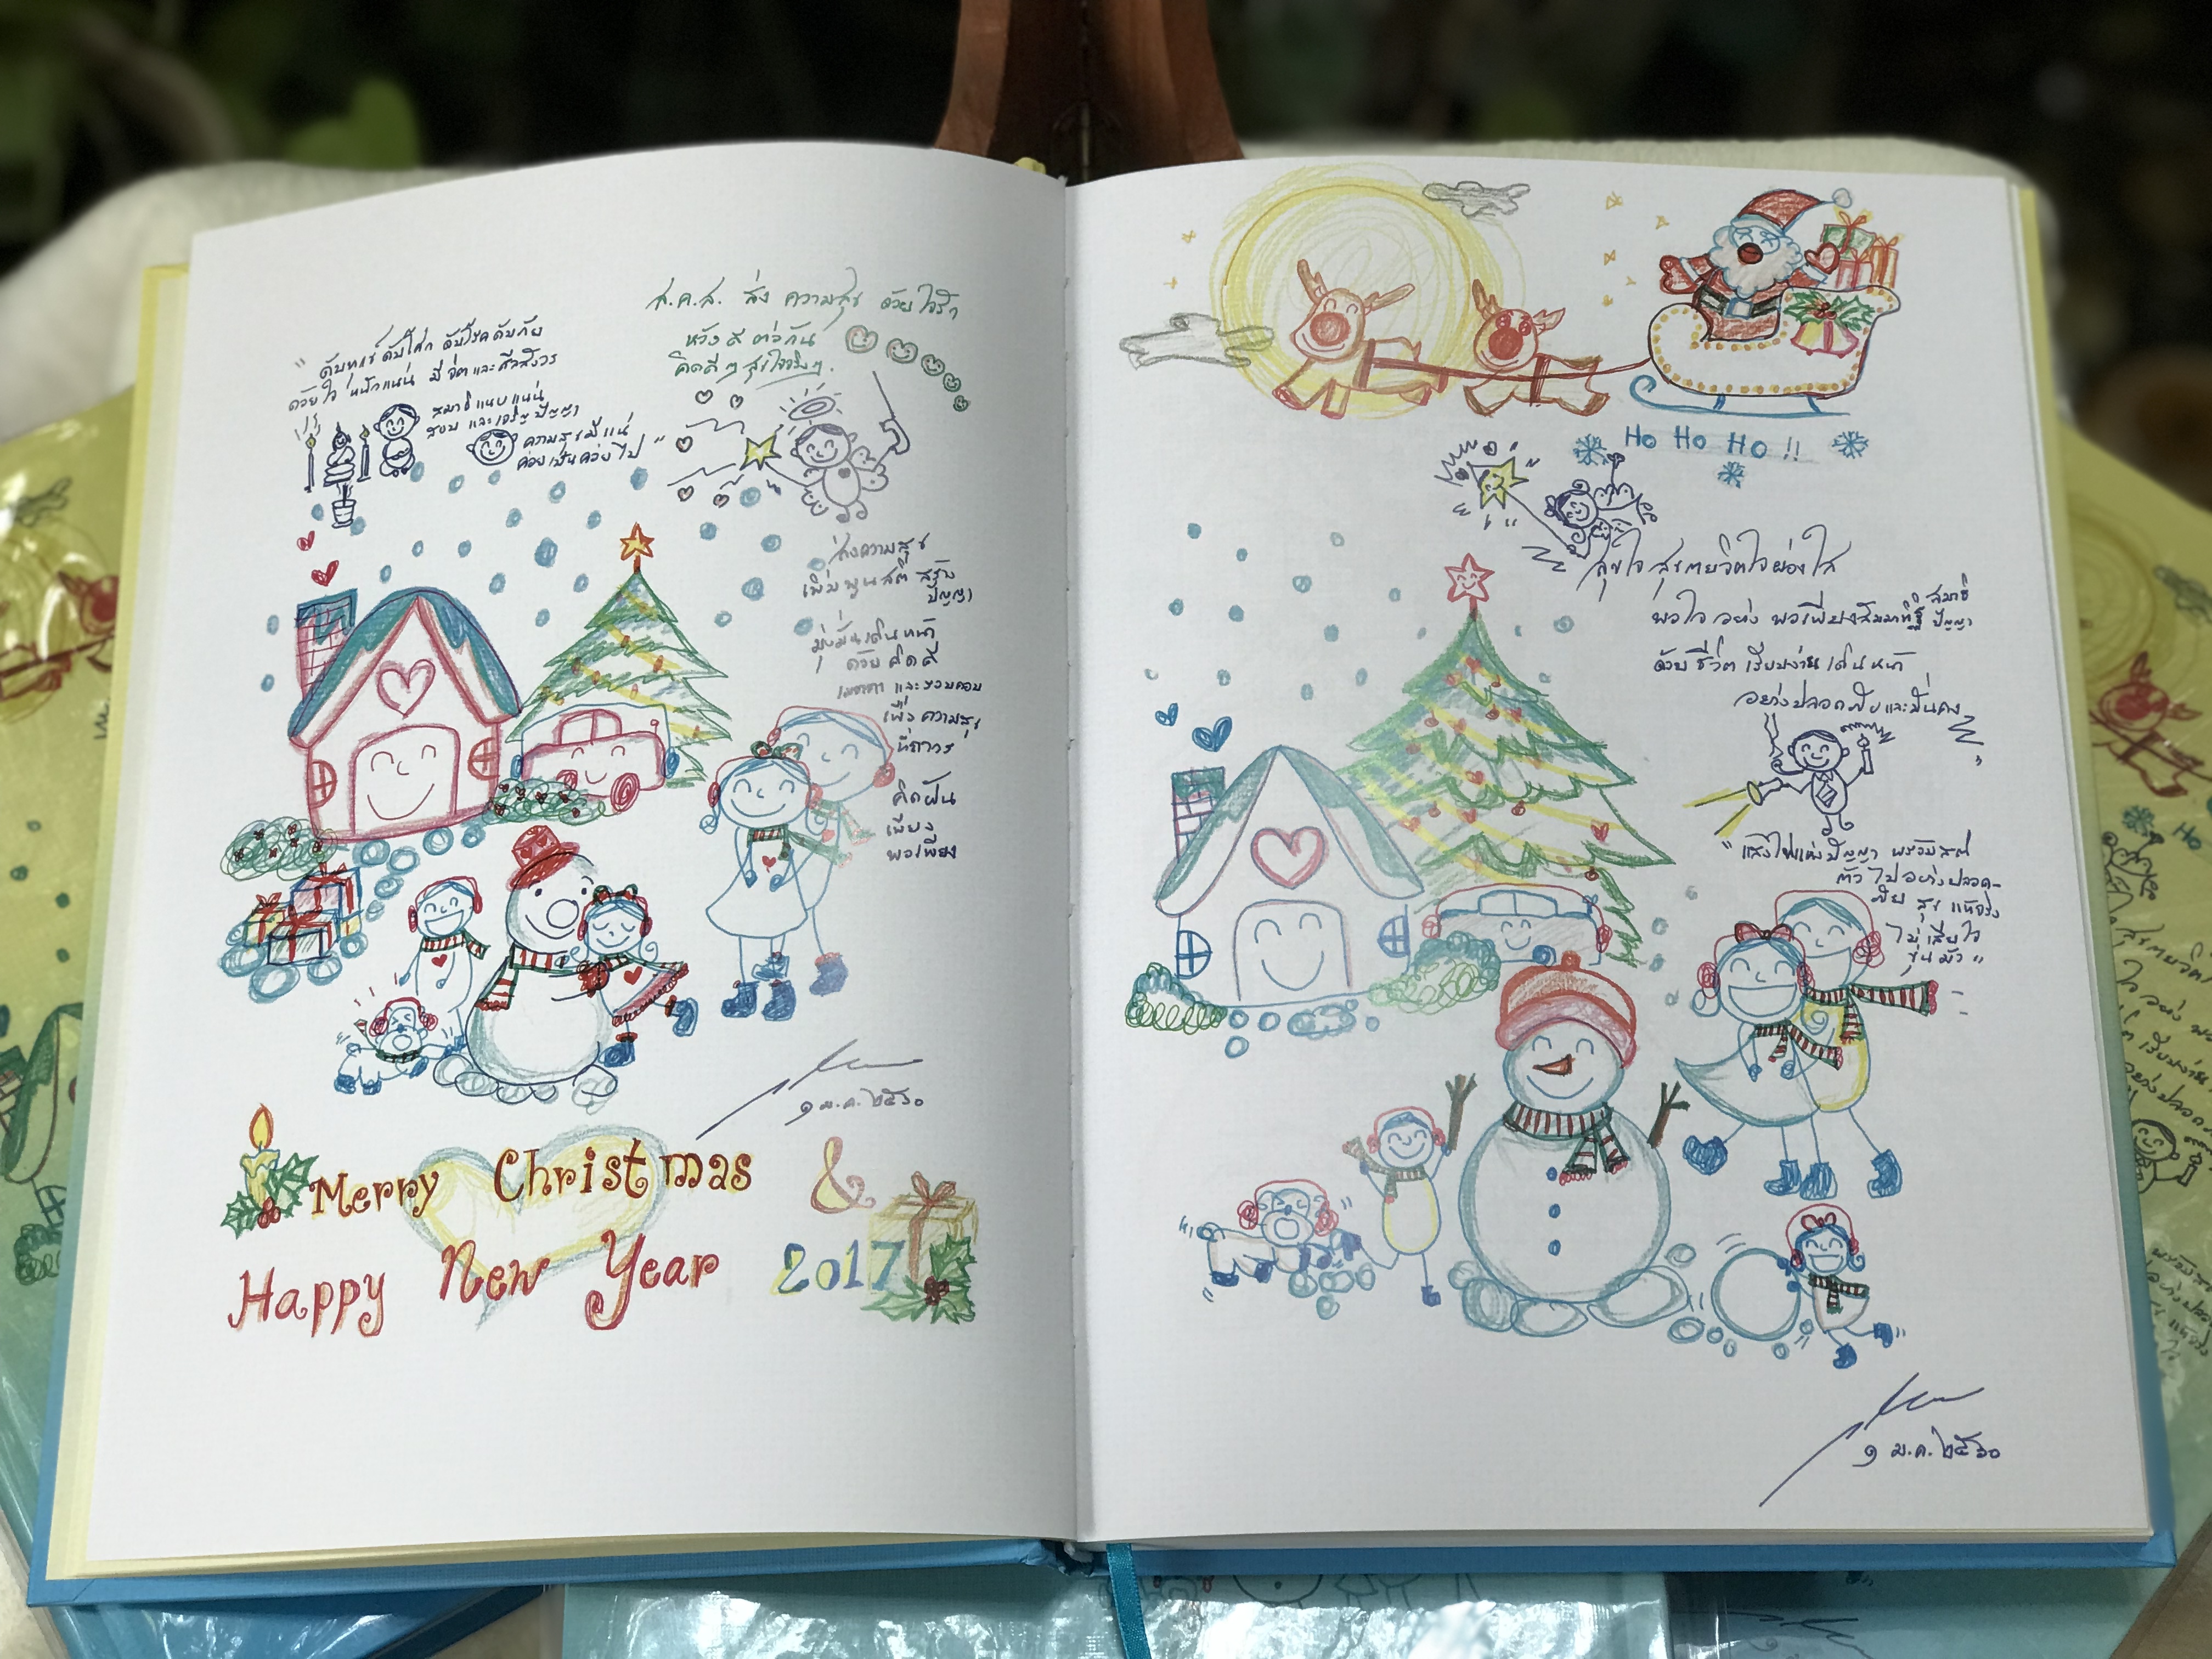 ส.ค.ส. ส่ง ความสุข ด้วย ใจรัก
หวังดี ต่อกัน
คิดดีๆ สุขใจจริงๆ.
"ดับทุกข์ ดับโศก ดับโรค ดับภัย
ด้วยใจ หนักแน่น มีจิต และศีลสังวร
สมาธิแนบแน่น
สงบ และเจริญปัญญา
ความสุขมีแน่
ค่อยเป็นค่อยไป"
ส่งความสุข
เพิ่มพูนสติ สร้าง
ปัญญา
มุ่งมั่นเดินหน้า
ด้วย คิดดี
เมตตา และรอบคอบ
เพื่อ ความสุข
ที่ถาวร
คิดฝัน
เพียง
พอเพียง
๑ ม.ค. ๒๕๖๐
Merry Christmas &
Happy New Year 2017
Ho Ho Ho !!
สุขใจ สุขภาพจิตใจผ่องใส
พอใจ อย่าง พอเพียง สัมมาทิฐิ สมาธิ
ปัญญา
ด้วยชีวิต เรียบง่าย เดินหน้า
อย่างปลอดภัยและมั่นคง
"แสงไฟแห่งปัญญา พร้อมสติ
ก้าวไปอย่างปลอด-
ภัย สุข แท้จริง
ไม่เสียใจ
ขุ่นมัว"
๑ ม.ค. ๒๕๖๐